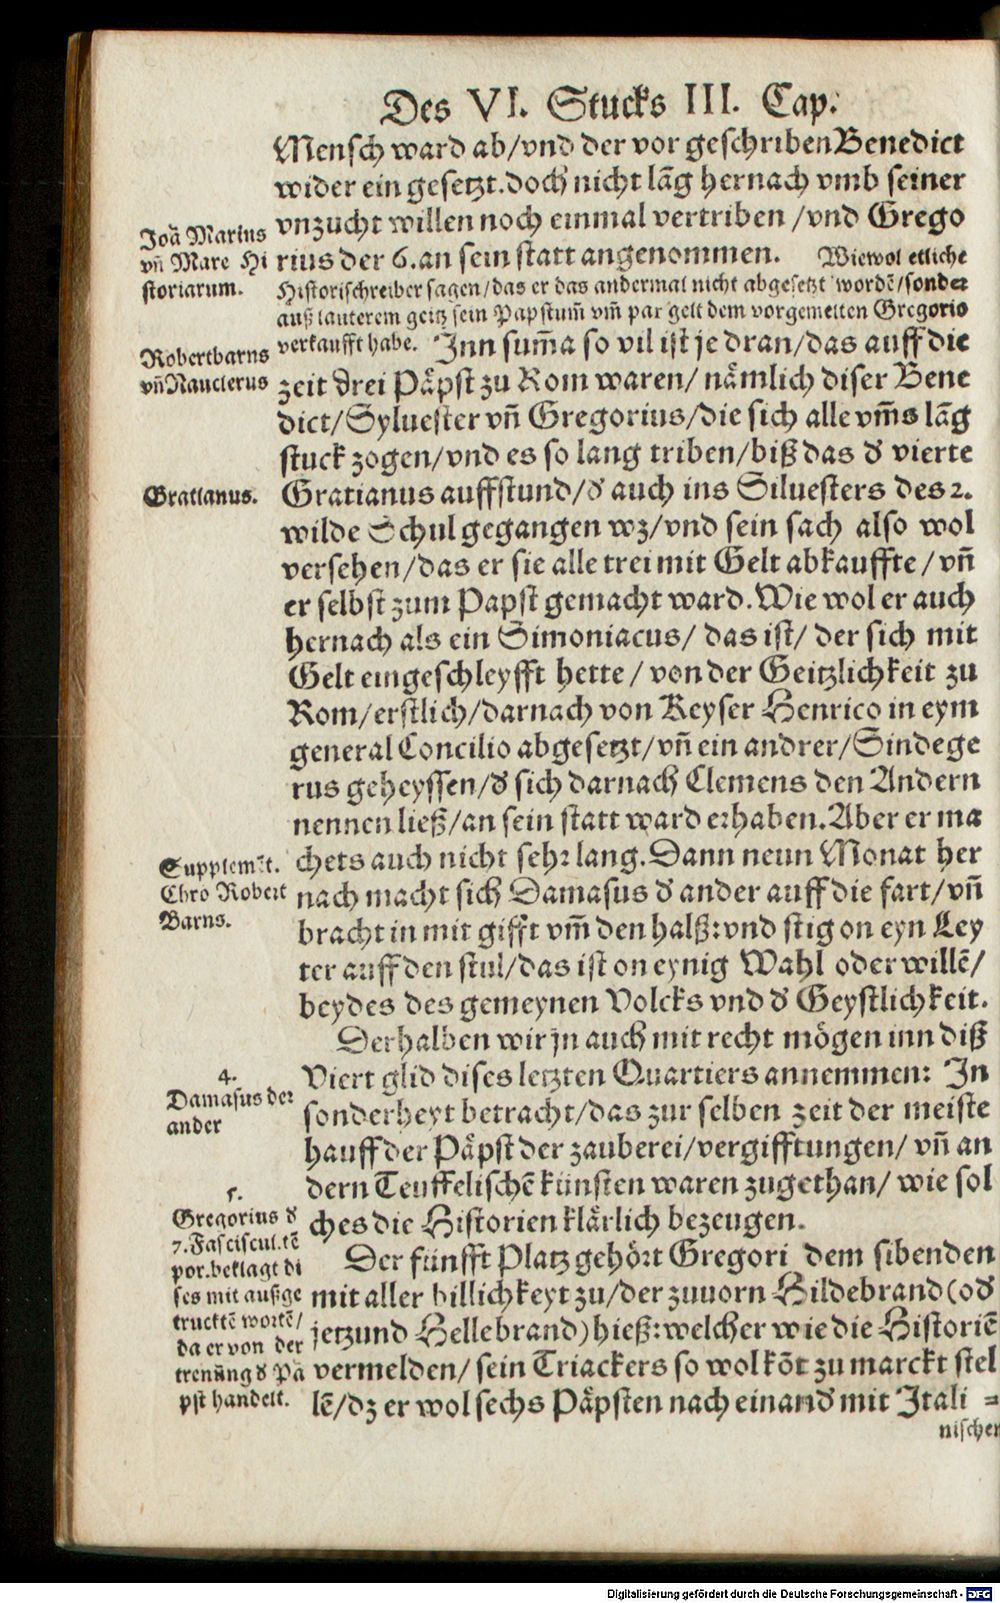 Des VI. Stucks III. Cap.
Mensch ward ab/vnd der vor geschriben Benedict
wider ein gesetzt. doch nicht lãg hernach vmb seiner
vnzucht willen noch einmal vertriben /vnd Grego
rius der 6. an sein statt angenommen. Wiewol etliche
Historischreiber sagen/das er das andermal nicht abgesetzt wordẽ/sonder
auß lauterem geitz sein Papstum̃ vm̃ par gelt dem vorgemelten Gregorio
verkaufft habe. Inn sum̃a so vil ist je dran/das auff die
zeit drei Påpst zu Rom waren/ nåmlich diser Bene
dict/Syluester vñ Gregorius/die sich alle vm̃s lãg
stuck zogen/vnd es so lang triben/biß das d̕ vierte
Gratianus auffstund/d̕ auch ins Siluesters des 2.
wilde Schul gegangen wz/vnd sein sach also wol
versehen/das er sie alle trei mit Gelt abkauffte/vñ
er selbst zum Papst gemacht ward. Wie wol er auch
hernach als ein Simoniacus/ das ist/ der sich mit
Gelt eingeschleyfft hette/ von der Geitzlichkeit zu
Rom/erstlich/darnach von Keyser Henrico in eym
general Concilio abgesetzt/vñ ein andrer/Sindege
rus geheyssen/d̕ sich darnach Clemens den Andern
nennen ließ/an sein statt ward erhaben. Aber er ma
chets auch nicht sehr lang. Dann neun Monat her
nach macht sich Damasus d̕ ander auff die fart/vñ
bracht in mit gifft vm̃ den halß: vnd stig on eyn Ley
ter auff den stul/das ist on eynig Wahl oder willẽ/
beydes des gemeynen Volcks vnd d̕ Geystlichkeit.
Derhalben wir jn auch mit recht mögen inn diß
Viert glid dises letzten Quartiers annemmen: In
sonderheyt betracht/das zur selben zeit der meiste
hauff der Påpst der zauberei/vergifftungen/ vñ an
dern Teuffelischẽ künsten waren zugethan/ wie sol
ches die Historien klårlich bezeugen.
Der fünfft Platz gehört Gregori dem sibenden
mit aller billichkeyt zu/der zuuorn Hildebrand (od̕
jetzund Hellebrand) hieß: welcher wie die Historiẽ
vermelden/ sein Triackers so wol kõt zu marckt stel
lẽ/dz er wol sechs Påpsten nach einand̕ mit Itali =
nischen
Joã Marius
vñ Mare Hi
storiarum.
Robertbarns
vñ Nauclerus
Gratianus.
Supplemẽt.
Chro Robert
Barns.
4.
Damasus der
ander
5.
Gregorius d̕
7. Fasciscul. tẽ
por. beklagt di
ses mit außge
trucktẽ wortẽ/
da er von der
trenũng d̕ På
pst handelt.
Digitalisierung gefördert durch die Deutsche Forschungsgemeinschaft - DFG